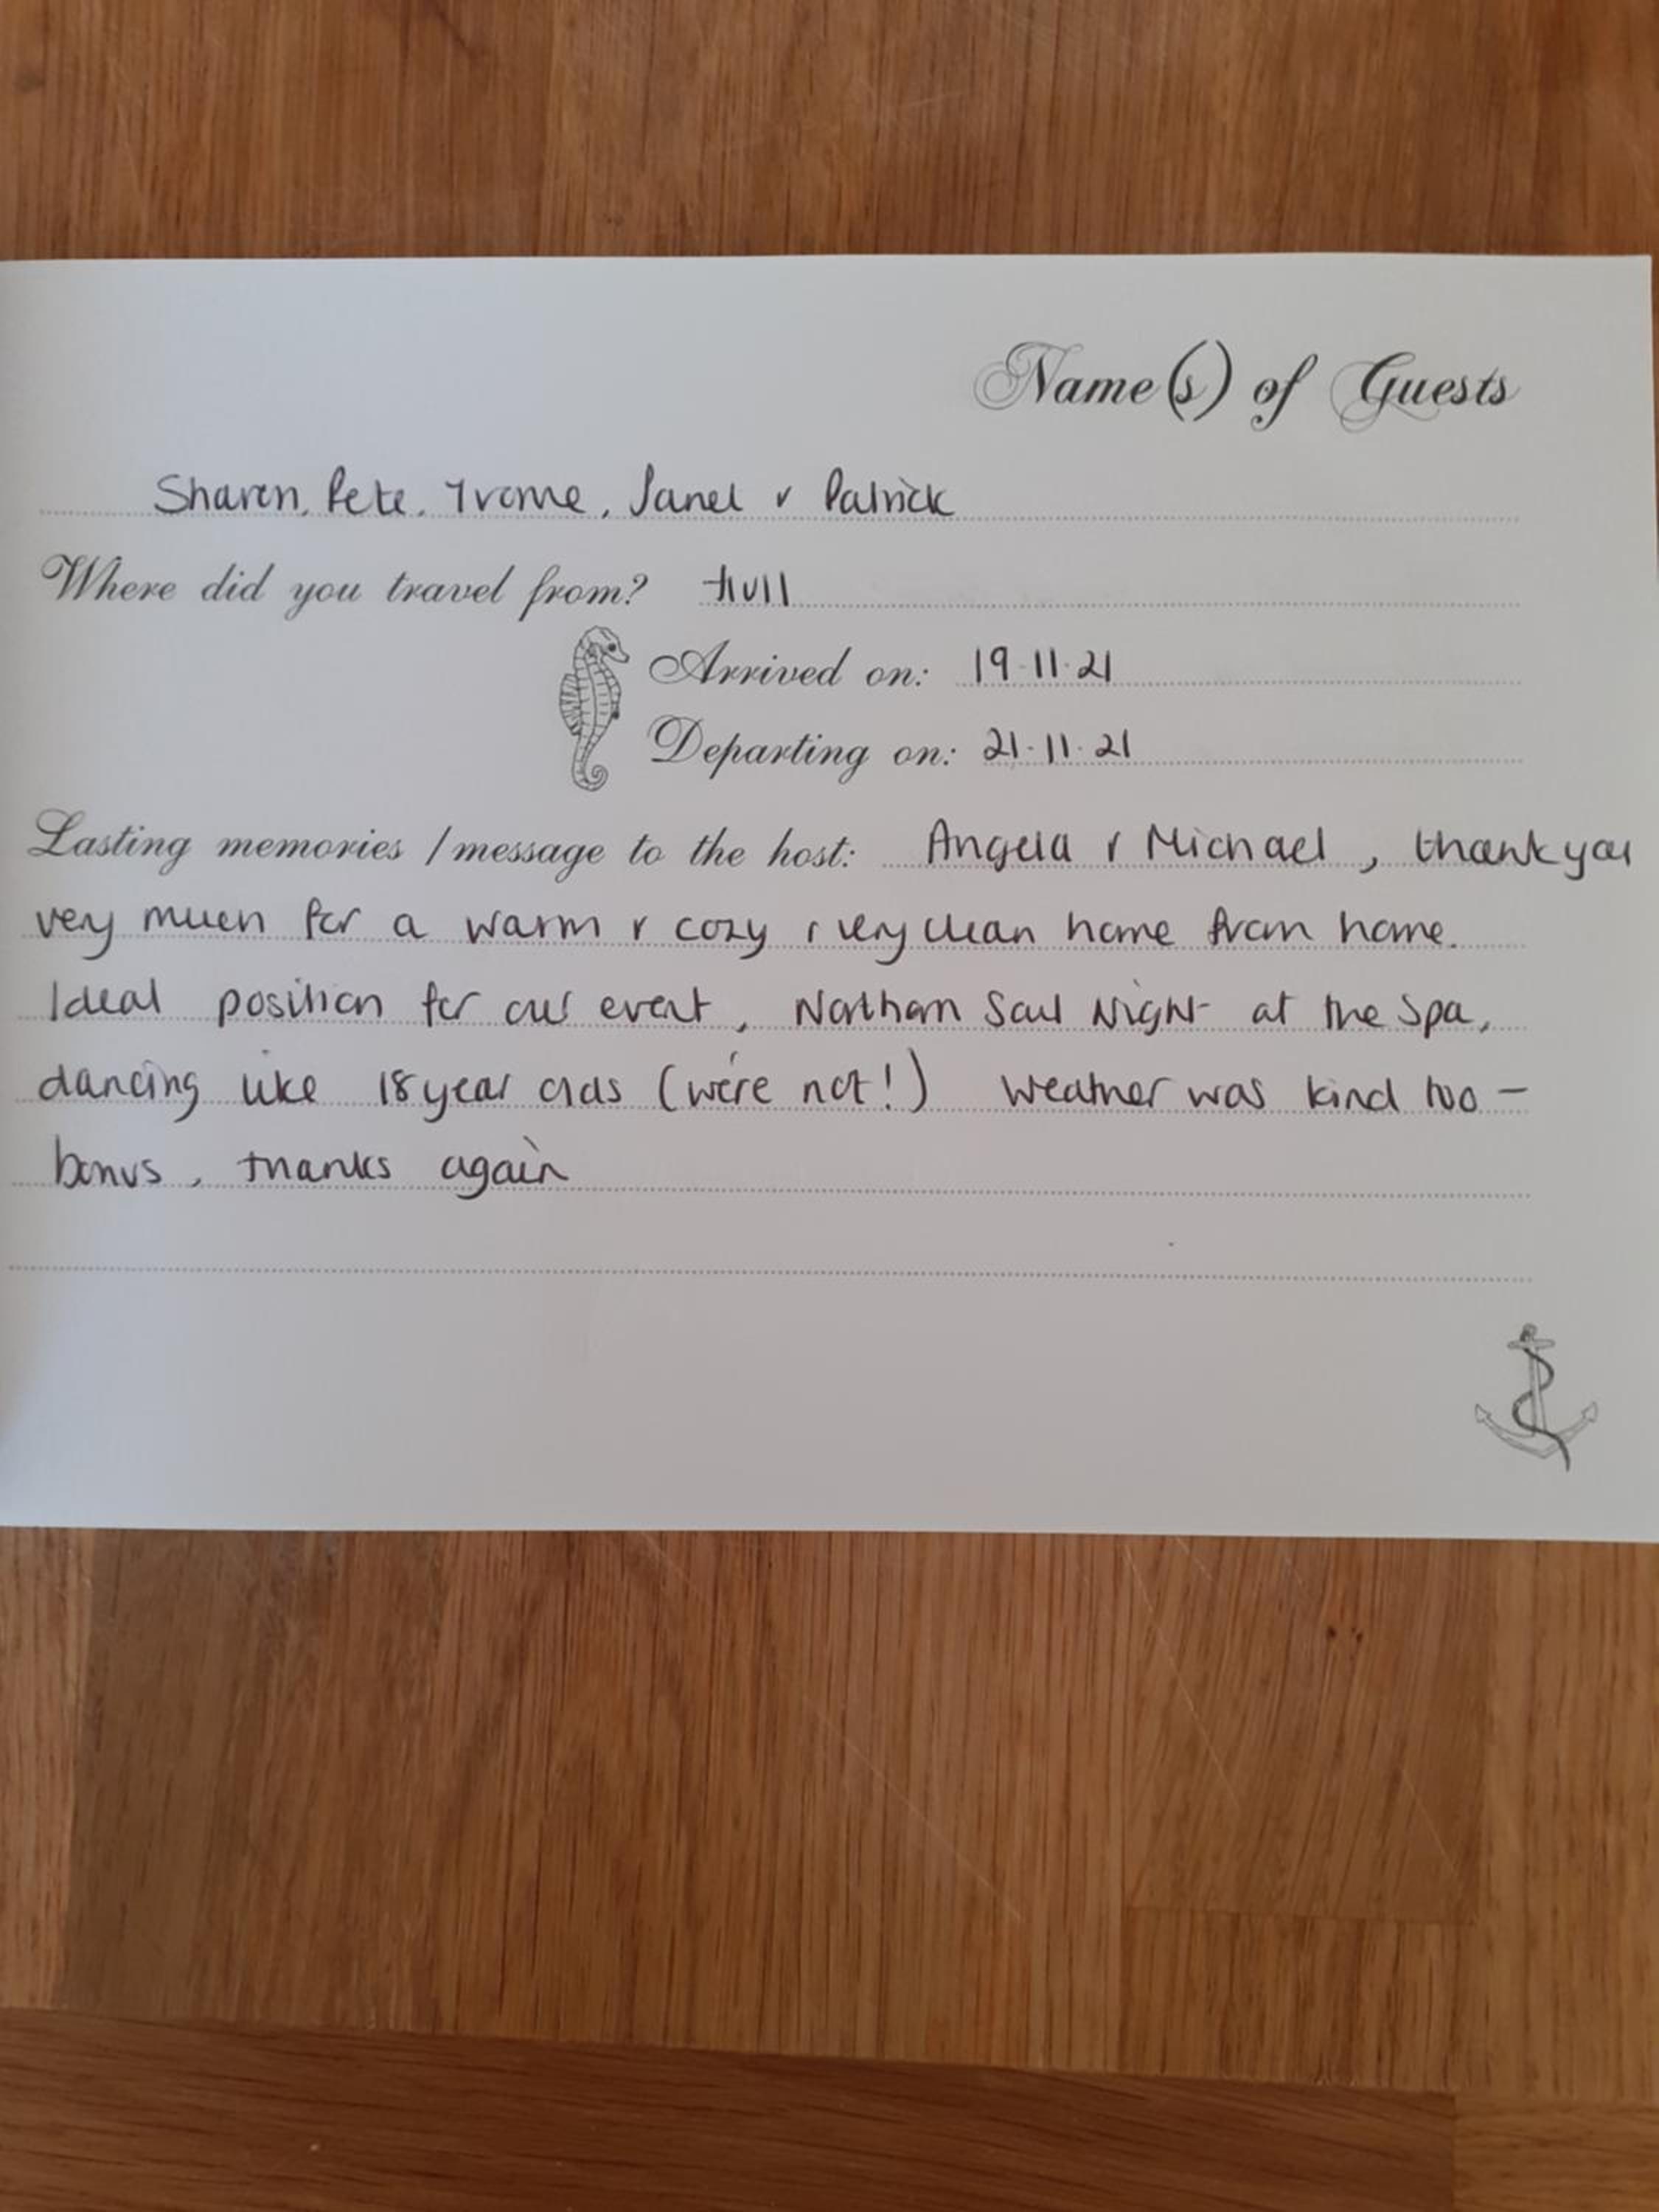 Name(s) of Guests
Sharon, Pete, Yvonne, Janet & Patrick
Where did you travel from? Hull
Arrived on: 19-11-21
Departing on: 21.11.21
Lasting memories / message to the host: Angela & Michael, thank you
very much for a warm & cozy & very clean home from home.
Ideal position for our event, Northern Soul Night at the Spa,
dancing like 18 year olds (we're not!) Weather was kind too -
bonus, thanks again